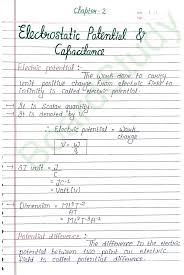 Chapter-2
Electrostatic Potential &
Capacitance
Electric potential :-
The work done to carry
unit positive charge from electric field to
infinity is called electric potential.
→ It is scalar quantity
→ It is denoted by V
∴ Electric potential = Work
charge
V = W
q
→ SI unit = J
C
= JC⁻¹
= Volt (V)
→ Dimension = ML²T⁻²
AT
= ML²T⁻³A⁻¹
Potential difference :-
The difference in the electric
potential between two point an electric
field is called potential difference.